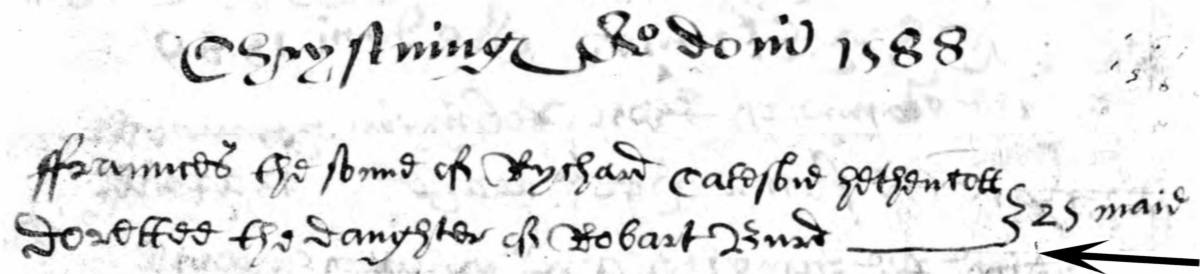 Chrystning Ao domi 1588
ffraunces the sonne of Rychard Catesbie hethencott
Dorettee the daughter of Robart Burd 25 maie